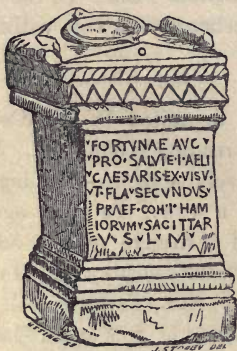 FORTVNAE AVG
PRO·SALVTE·L·AELI
CAESARIS·EX·VISV
T·FLA·SECVNDVS
PRAEF·COH·I·HAM
IORVM·SAGITTAR
V·S·L·M
UTTING SC
J. STOREY DEL